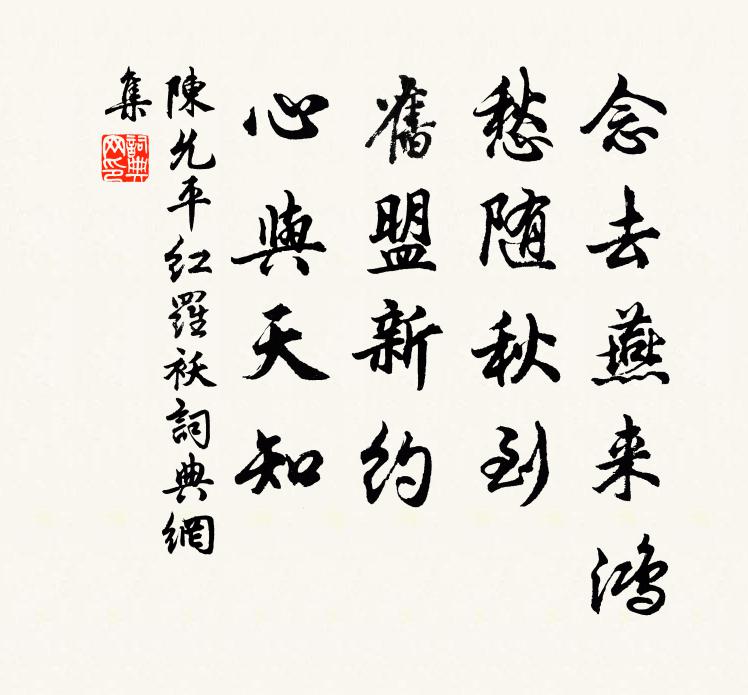 念去燕来鸿
愁随秋到
舊盟新约
心與天知
陳允平红羅袄詞典網
集
詞典网印